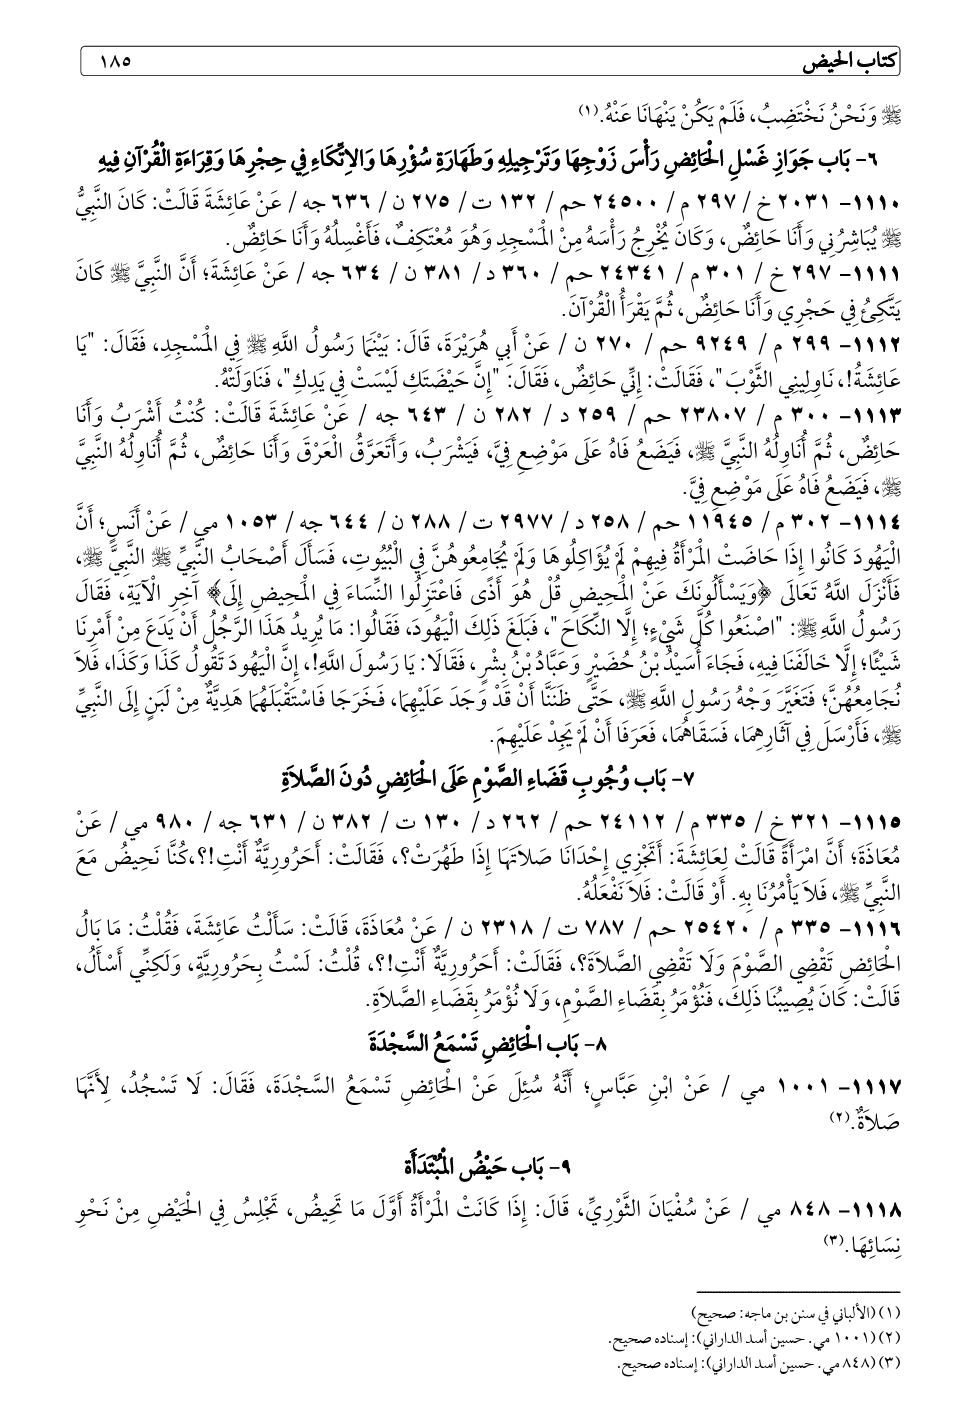 كتاب الحيض ١٨٥
ﷺ وَنَحْنُ نَخْتَضِبُ، فَلَمْ يَكُنْ يَنْهَانَا عَنْهُ.(١)
٦- بَاب جَوَازِ غَسْلِ الْحَائِضِ رَأْسَ زَوْجِهَا وَتَرْجِيلِهِ وَطَهَارَةِ سُؤْرِهَا وَالِاتِّكَاءِ فِي حِجْرِهَا وَقِرَاءَةِ الْقُرْآنِ فِيهِ
١١١٠- ٢٠٣١ خ / ٢٩٧ م / ٢٤٥٠٠ حم / ١٣٢ ت / ٢٧٥ ن / ٦٣٦ جه / عَنْ عَائِشَةَ قَالَتْ: كَانَ النَّبِيُّ
ﷺ يُبَاشِرُنِي وَأَنَا حَائِضٌ، وَكَانَ يُخْرِجُ رَأْسَهُ مِنْ الْمَسْجِدِ وَهُوَ مُعْتَكِفٌ، فَأَغْسِلُهُ وَأَنَا حَائِضٌ.
١١١١- ٢٩٧ خ / ٣٠١ م / ٢٤٣٤١ حم / ٣٦٠ د / ٣٨١ ن / ٦٣٤ جه / عَنْ عَائِشَةَ؛ أَنَّ النَّبِيَّ ﷺ كَانَ
يَتَّكِئُ فِي حَجْرِي وَأَنَا حَائِضٌ، ثُمَّ يَقْرَأُ الْقُرْآنَ.
١١١٢- ٢٩٩ م / ٩٢٤٩ حم / ٢٧٠ ن / عَنْ أَبِي هُرَيْرَةَ، قَالَ: بَيْنَمَا رَسُولُ اللَّهِ ﷺ فِي الْمَسْجِدِ، فَقَالَ: "يَا
عَائِشَةُ!، نَاوِلِينِي الثَّوْبَ"، فَقَالَتْ: إِنِّي حَائِضٌ، فَقَالَ: "إِنَّ حَيْضَتَكِ لَيْسَتْ فِي يَدِكِ"، فَنَاوَلَتْهُ.
١١١٣- ٣٠٠ م / ٢٣٨٠٧ حم / ٢٥٩ د / ٢٨٢ ن / ٦٤٣ جه / عَنْ عَائِشَةَ قَالَتْ: كُنْتُ أَشْرَبُ وَأَنَا
حَائِضٌ، ثُمَّ أُنَاوِلُهُ النَّبِيَّ ﷺ، فَيَضَعُ فَاهُ عَلَى مَوْضِعِ فِيَّ، فَيَشْرَبُ، وَأَتَعَرَّقُ الْعَرْقَ وَأَنَا حَائِضٌ، ثُمَّ أُنَاوِلُهُ النَّبِيَّ
ﷺ، فَيَضَعُ فَاهُ عَلَى مَوْضِعِ فِيَّ.
١١١٤- ٣٠٢ م / ١١٩٤٥ حم / ٢٥٨ د / ٢٩٧٧ ت / ٢٨٨ ن / ٦٤٤ جه / ١٠٥٣ مي / عَنْ أَنَسٍ؛ أَنَّ
الْيَهُودَ كَانُوا إِذَا حَاضَتْ الْمَرْأَةُ فِيهِمْ لَمْ يُؤَاكِلُوهَا وَلَمْ يُجَامِعُوهُنَّ فِي الْبُيُوتِ، فَسَأَلَ أَصْحَابُ النَّبِيِّ ﷺ النَّبِيَّ ﷺ،
فَأَنْزَلَ اللَّهُ تَعَالَى ﴿وَيَسْأَلُونَكَ عَنْ الْمَحِيضِ قُلْ هُوَ أَذًى فَاعْتَزِلُوا النِّسَاءَ فِي الْمَحِيضِ إِلَى﴾ آخِرِ الْآيَةِ، فَقَالَ
رَسُولُ اللَّهِ ﷺ: "اصْنَعُوا كُلَّ شَيْءٍ؛ إِلَّا النِّكَاحَ"، فَبَلَغَ ذَلِكَ الْيَهُودَ، فَقَالُوا: مَا يُرِيدُ هَذَا الرَّجُلُ أَنْ يَدَعَ مِنْ أَمْرِنَا
شَيْئًا؛ إِلَّا خَالَفَنَا فِيهِ، فَجَاءَ أُسَيْدُ بْنُ حُضَيْرٍ وَعَبَّادُ بْنُ بِشْرٍ، فَقَالَا: يَا رَسُولَ اللَّهِ!، إِنَّ الْيَهُودَ تَقُولُ كَذَا وَكَذَا، فَلاَ
نُجَامِعُهُنَّ؛ فَتَغَيَّرَ وَجْهُ رَسُولِ اللَّهِ ﷺ، حَتَّى ظَنَنَّا أَنْ قَدْ وَجَدَ عَلَيْهِمَا، فَخَرَجَا فَاسْتَقْبَلَهُمَا هَدِيَّةٌ مِنْ لَبَنٍ إِلَى النَّبِيِّ
ﷺ، فَأَرْسَلَ فِي آثَارِهِمَا، فَسَقَاهُمَا، فَعَرَفَا أَنْ لَمْ يَجِدْ عَلَيْهِمَ.
٧- بَاب وُجُوبِ قَضَاءِ الصَّوْمِ عَلَى الْحَائِضِ دُونَ الصَّلاَةِ
١١١٥- ٣٢١ خ / ٣٣٥ م / ٢٤١١٢ حم / ٢٦٢ د / ١٣٠ ت / ٣٨٢ ن / ٦٣١ جه / ٩٨٠ مي / عَنْ
مُعَاذَةَ؛ أَنَّ امْرَأَةً قَالَتْ لِعَائِشَةَ: أَتَجْزِي إِحْدَانَا صَلاَتَهَا إِذَا طَهُرَتْ؟، فَقَالَتْ: أَحَرُورِيَّةٌ أَنْتِ!؟،كُنَّا نَحِيضُ مَعَ
النَّبِيِّ ﷺ، فَلاَ يَأْمُرُنَا بِهِ. أَوْ قَالَتْ: فَلاَ نَفْعَلُهُ.
١١١٦- ٣٣٥ م / ٢٥٤٢٠ حم / ٧٨٧ ت / ٢٣١٨ ن / عَنْ مُعَاذَةَ، قَالَتْ: سَأَلْتُ عَائِشَةَ، فَقُلْتُ: مَا بَالُ
الْحَائِضِ تَقْضِي الصَّوْمَ وَلَا تَقْضِي الصَّلاَةَ؟، فَقَالَتْ: أَحَرُورِيَّةٌ أَنْتِ!؟، قُلْتُ: لَسْتُ بِحَرُورِيَّةٍ، وَلَكِنِّي أَسْأَلُ،
قَالَتْ: كَانَ يُصِيبُنَا ذَلِكَ، فَنُؤْمَرُ بِقَضَاءِ الصَّوْمِ، وَلَا نُؤْمَرُ بِقَضَاءِ الصَّلاَةِ.
٨- بَاب الْحَائِضِ تَسْمَعُ السَّجْدَةَ
١١١٧- ١٠٠١ مي / عَنْ ابْنِ عَبَّاسٍ؛ أَنَّهُ سُئِلَ عَنْ الْحَائِضِ تَسْمَعُ السَّجْدَةَ، فَقَالَ: لَا تَسْجُدُ، لِأَنَّهَا
صَلاَةٌ.(٢)
٩- بَاب حَيْضُ الْمُبْتَدَأَة
١١١٨- ٨٤٨ مي / عَنْ سُفْيَانَ الثَّوْرِيِّ، قَالَ: إِذَا كَانَتْ الْمَرْأَةُ أَوَّلَ مَا تَحِيضُ، تَجْلِسُ فِي الْحَيْضِ مِنْ نَحْوِ
نِسَائِهَا.(٣)
(١) (الألباني في سنن بن ماجه: صحيح)
(٢) (١٠٠١ مي. حسين أسد الداراني): إسناده صحيح.
(٣) (٨٤٨ مي. حسين أسد الداراني): إسناده صحيح.